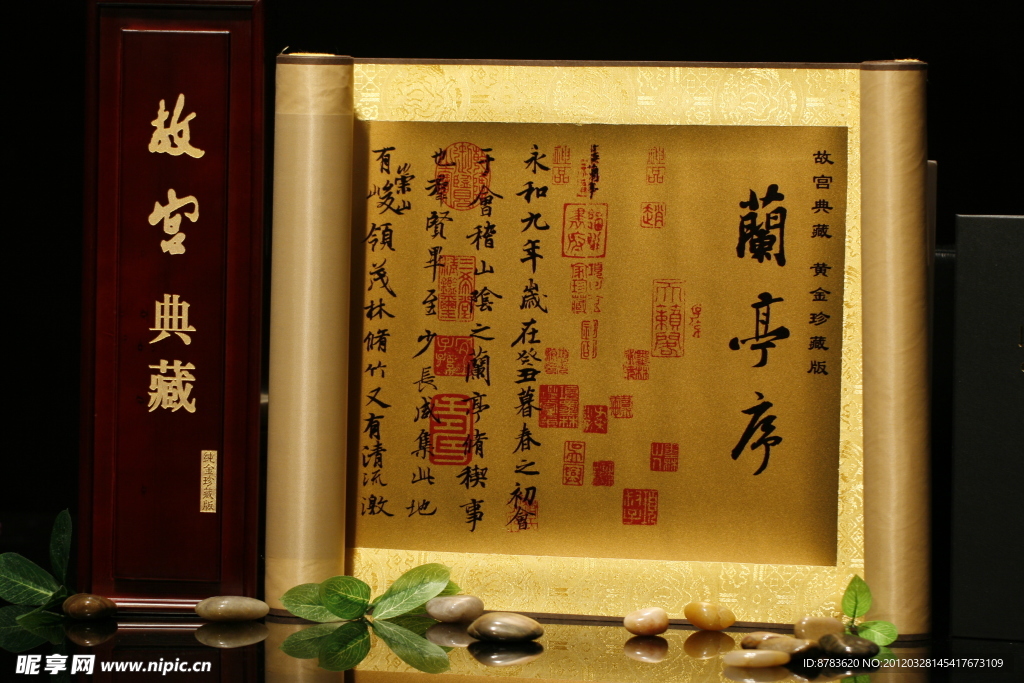 故宫典藏
纯金珍藏版
故宫典藏 黄金珍藏版
蘭亭序
永和九年歲在癸丑暮春之初會
于會稽山陰之蘭亭脩稧事
也羣賢畢至少長咸集此地
有崇山峻領茂林脩竹又有清流激
昵享网 www.nipic.cn
ID:8783620 NO:20120328145417673109